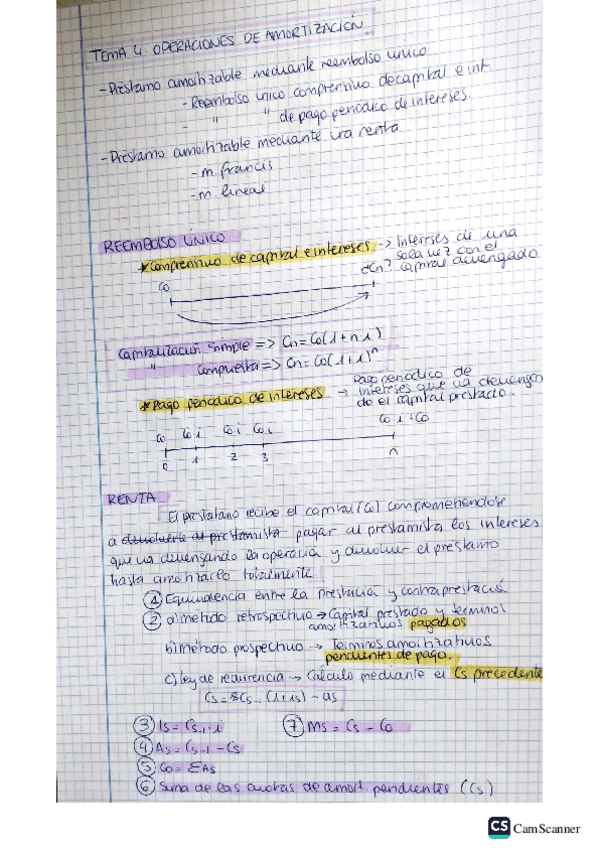 TEMA 4: OPERACIONES DE AMORTIZACIÓN
- Préstamo amortizable mediante reembolso único
- Reembolso único comprensivo de capital e int.
- " " de pago periódico de intereses.
- Préstamo amortizable mediante una renta
- m. francés
- m. lineal
REEMBOLSO ÚNICO
* Comprensivo de capital e intereses -> Intereses de una
sola vez con el
capital devengado
Co
¿Cn?
Capitalización simple => Cn = Co(1+n·i)
" compuesta => Cn = Co(1+i)^n
* Pago periódico de intereses -> Pago periódico de
intereses que va devengan
do el capital prestado.
Co Co·i Co·i Co·i Co·i+Co
0 1 2 3 n
RENTA
El prestatario recibe el capital (Co) comprometiéndose
a devolverle al prestamista pagar al prestamista los intereses
que va devengando la operación y devolver el préstamo
hasta amortizarlo totalmente
① Equivalencia entre la prestació y contraprestació
② a) método retrospectivo -> Capital prestado y términos
amortizativos pagados
b) método prospectivo -> Términos amortizativos
pendientes de pago.
c) ley de recurrencia -> Cálculo mediante el Cs precedente
Cs = Cs-1 (1+is) - as
③ Is = Cs-1·i ⑦ Ms = Cs - Co
④ As = Cs-1 - Cs
⑤ Co = ΣAs
⑥ Suma de las cuotas de amort. pendientes (Cs)
CS CamScanner